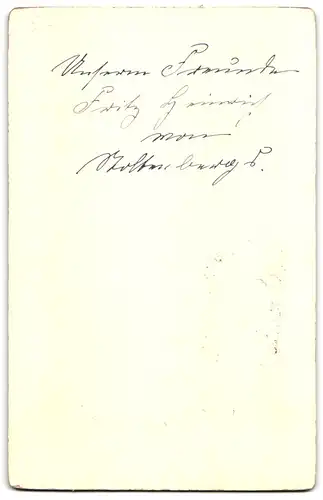 Unserm Freunde
Fritz Heinrich!
von
Stoltenbergs.